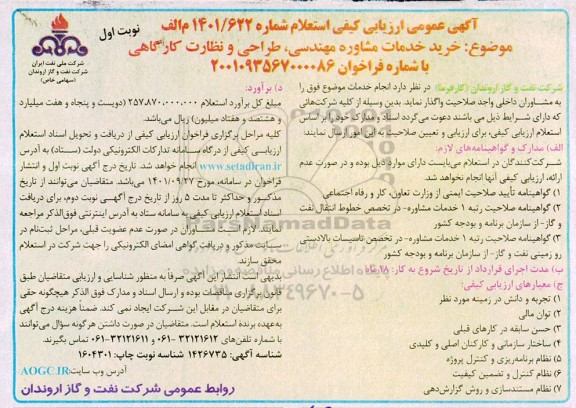 آگهی عمومی ارزیابی کیفی استعلام شماره ۱۴۰۱/۶۲۲ م‌الف
نوبت اول
موضوع: خرید خدمات مشاوره مهندسی، طراحی و نظارت کارگاهی
با شماره فراخوان ۲۰۰۱۰۹۳۵۶۷۰۰۰۰۸۶
شرکت ملی نفت ایران
شرکت نفت و گاز اروندان
(سهامی خاص)
شرکت نفت و گاز اروندان (کارفرما) در نظر دارد انجام خدمات موضوع فوق را
به مشاوران داخلی واجد صلاحیت واگذار نماید. بدین وسیله از کلیه شرکت‌هائی
که دارای شرایط ذیل می باشند دعوت می‌گردد اسناد و مدارک خود را بر اساس
استعلام ارزیابی کیفی، برای ارزیابی و تعیین صلاحیت به این امور ارسال نمایند:
الف) مدارک و گواهینامه‌های لازم:
شرکت‌کنندگان در استعلام می‌بایست دارای موارد ذیل بوده و در صورت عدم
ارائه، ارزیابی کیفی آنها انجام نخواهد شد.
۱) گواهینامه تأیید صلاحیت ایمنی از وزارت تعاون، کار و رفاه اجتماعی
۲) گواهینامه صلاحیت رتبه ۱ خدمات مشاوره- در تخصص خطوط انتقال نفت
و گاز- از سازمان برنامه و بودجه کشور
۳) گواهینامه صلاحیت رتبه ۱ خدمات مشاوره- در تخصص تاسیسات بالادستی
رو زمینی نفت و گاز- از سازمان برنامه و بودجه کشور
ب) مدت اجرای قرارداد از تاریخ شروع به کار: ۱۸ ماه
ج) معیارهای ارزیابی کیفی:
۱) تجربه و دانش در زمینه مورد نظر
۲) توان مالی
۳) حسن سابقه در کارهای قبلی
۴) ساختار سازمانی و کارکنان اصلی و کلیدی
۵) نظام برنامه‌ریزی و کنترل پروژه
۶) نظام کنترل و تضمین کیفیت
۷) نظام مستندسازی و روش گزارش‌دهی
د) برآورد:
مبلغ کل برآورد استعلام ۲۵۷،۸۷۰،۰۰۰،۰۰۰ (دویست و پنجاه و هفت میلیارد
و هشتصد و هفتاد میلیون) ریال می‌باشد.
کلیه مراحل برگزاری فراخوان ارزیابی کیفی از دریافت و تحویل اسناد استعلام
ارزیابی کیفی از درگاه سامانه تدارکات الکترونیکی دولت (ستاد) به آدرس
www.setadiran.ir انجام خواهد شد. تاریخ درج آگهی نوبت اول و انتشار
فراخوان در سامانه، مورخ ۱۴۰۱/۰۹/۲۷ می‌باشد. متقاضیان می‌توانند از تاریخ
مذکور و حداکثر تا مدت ۵ روز از تاریخ درج آگهی نوبت دوم، برای دریافت
اسناد استعلام ارزیابی کیفی به سامانه ستاد به آدرس اینترنتی فوق‌الذکر مراجعه
نمایند. لازم است مشاوران در صورت عدم عضویت قبلی، مراحل ثبت‌نام در
سایت مذکور و دریافت گواهی امضای الکترونیکی را جهت شرکت در استعلام
محقق سازند.
بدیهی است انتشار این آگهی صرفاً به منظور شناسایی و ارزیابی متقاضیان طبق
قانون برگزاری مناقصات بوده و ارسال اسناد و مدارک فوق الذکر هیچگونه حقی
برای متقاضیان در مقابل این شرکت ایجاد نمی کند. ضمناً هزینه درج آگهی
به‌عهده برنده استعلام است. متقاضیان در صورت داشتن هرگونه سؤال می‌توانند
با شماره تلفن‌های ۳۲۱۲۱۶۱۲-۰۶۱ و ۳۲۱۲۱۶۱۱-۰۶۱ تماس بگیرند.
شناسه آگهی: ۱۴۲۶۷۳۵ شناسه نوبت چاپ: ۱۶۰۴۳۰۱
آدرس وب سایت: AOGC.IR
روابط عمومی شرکت نفت و گاز اروندان
ParsNamadData